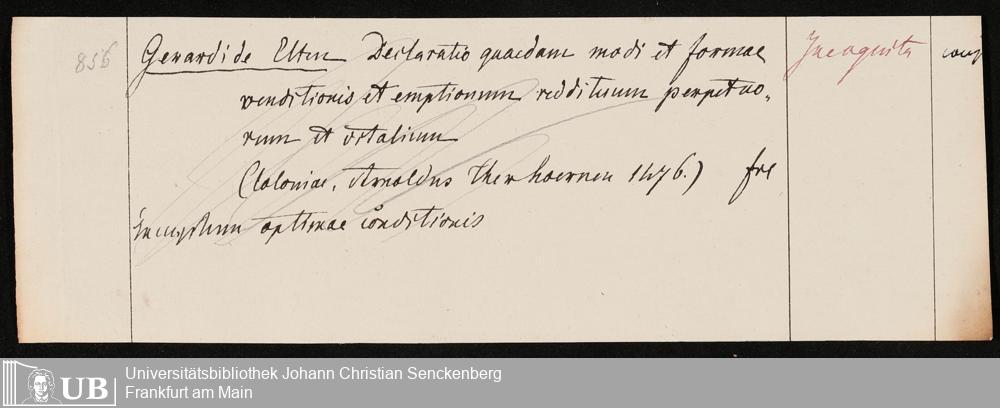 856
Gerardi de Elten Declaratio quaedam modi et formae Incognita
venditionis et emptionum reddituum perpetuo-
rum et vitalium
(Coloniae, Arnoldus Ther hoernen 1476.)
optimae conditionis
UB Universitätsbibliothek Johann Christian Senckenberg
Frankfurt am Main